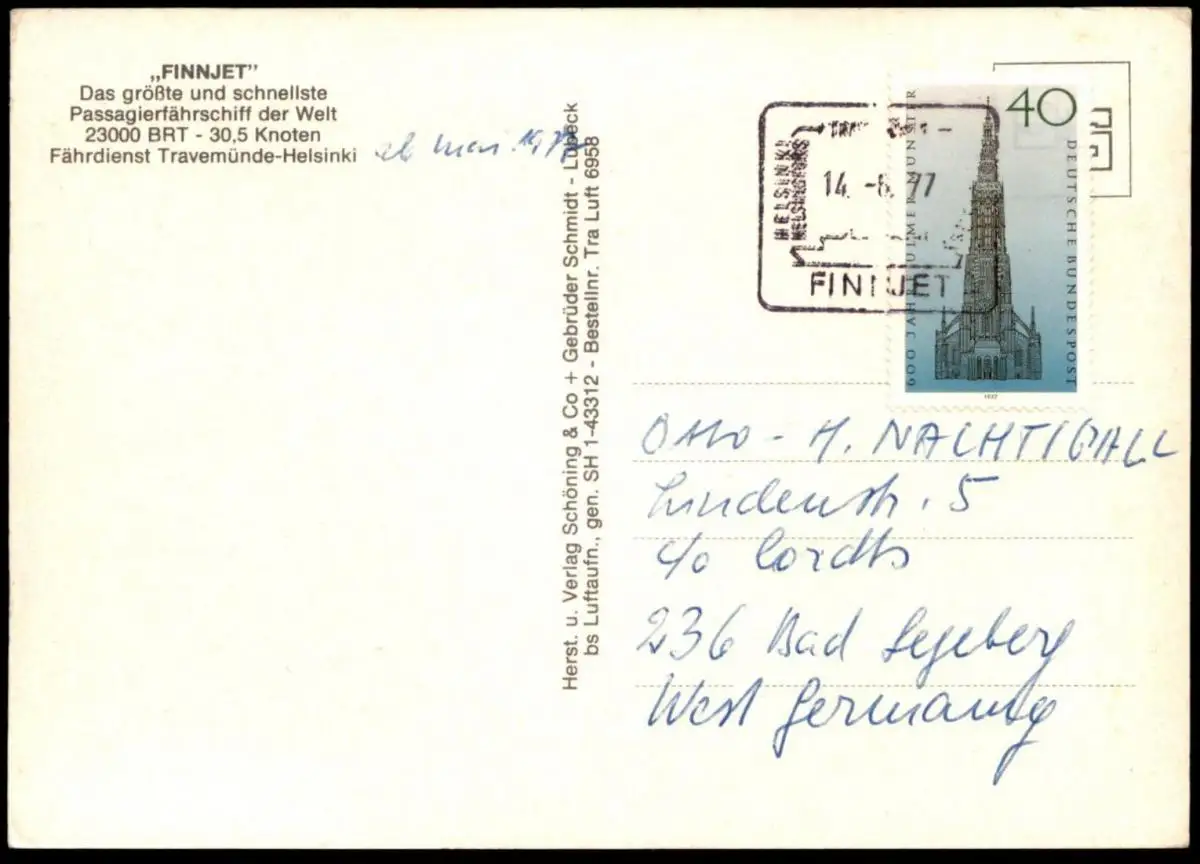 „FINNJET”
Das größte und schnellste
Passagierfährschiff der Welt
23000 BRT - 30,5 Knoten
Fährdienst Travemünde-Helsinki
ab Mai 1977
Herst. u. Verlag Schöning & Co + Gebrüder Schmidt - Lübeck
bs Luftaufn., gen. SH 1-43312 - Bestellnr. Tra Luft 6958
HELSINKI
HELSINGFORS
14. -6. 77
FINNJET
40
600 JAHRE ULMER MÜNSTER
DEUTSCHE BUNDESPOST
1977
Otto - H. NACHTIGALL
Lindenstr. 5
c/o Cordts
236 Bad Segeberg
West Germany